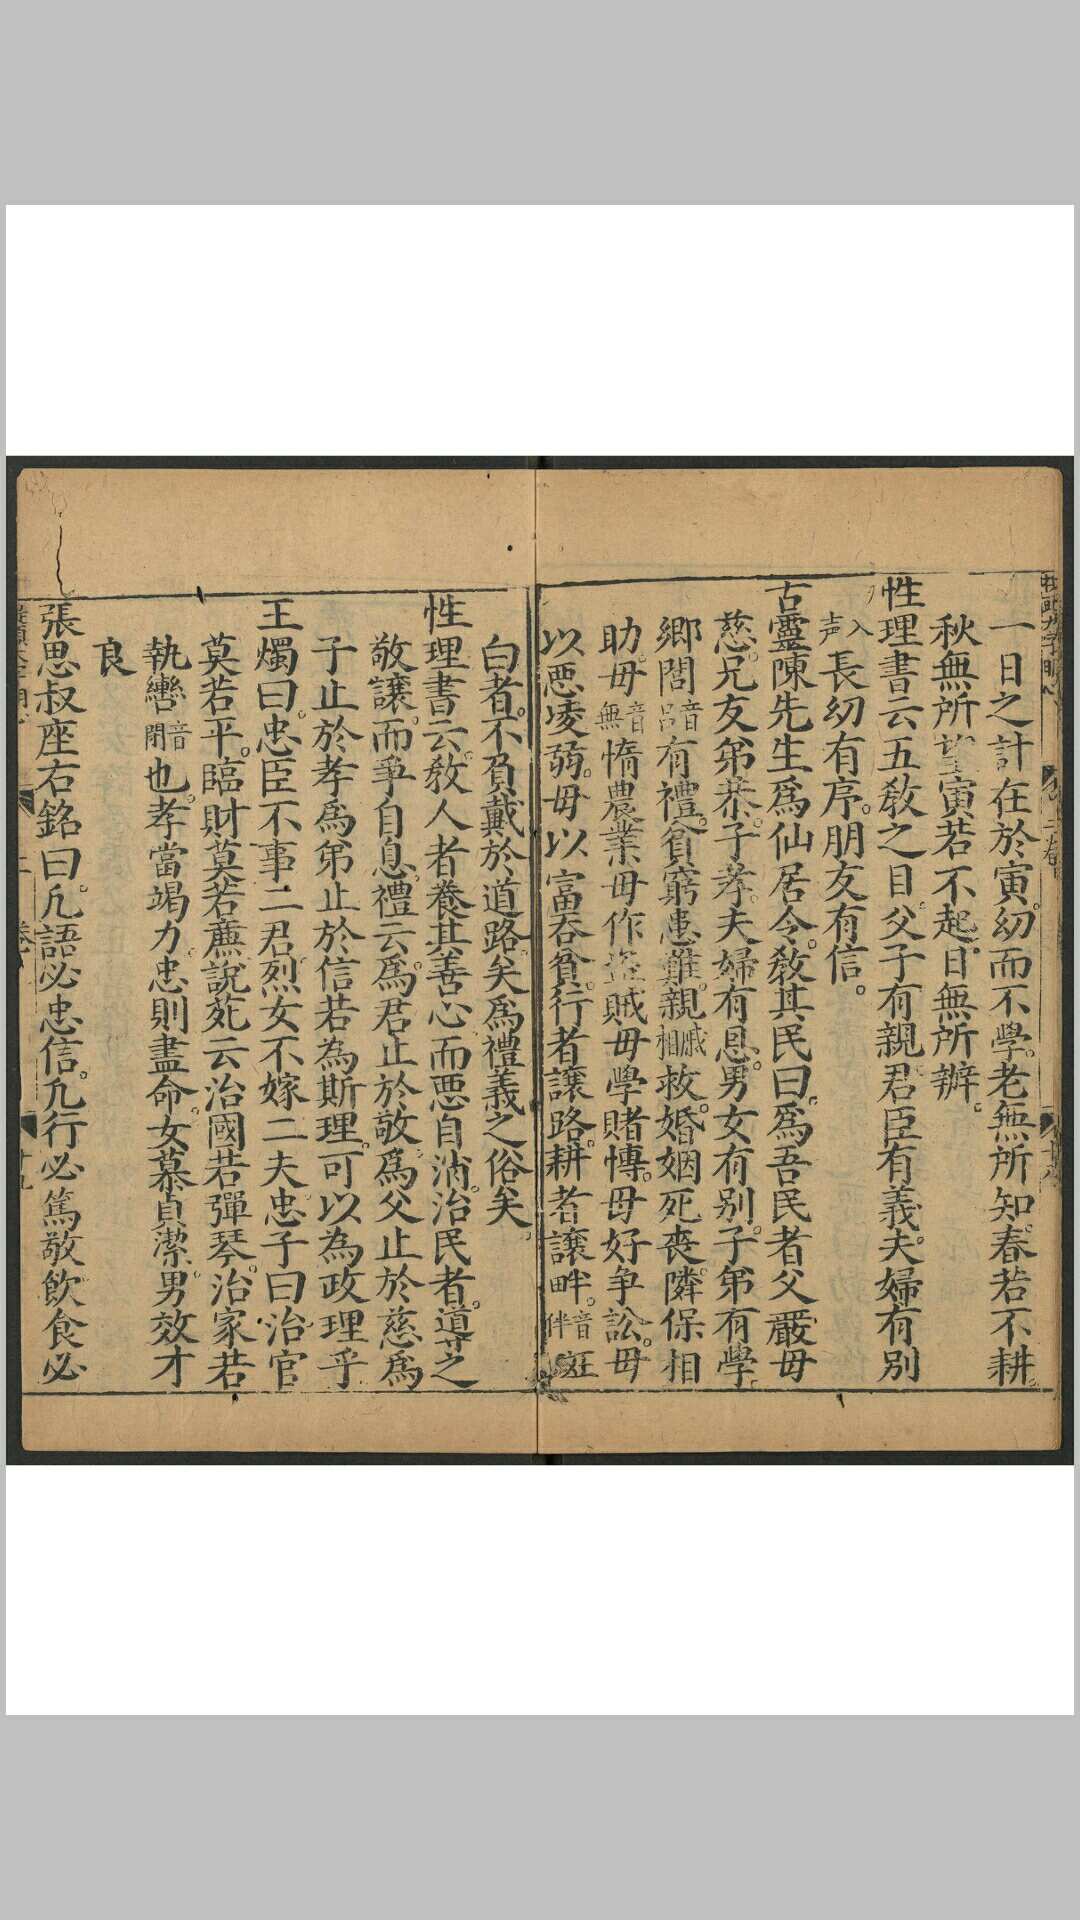 一日之計在於寅。幼而不學。老無所知。春若不耕。
秋無所望。寅若不起。日無所辦。
性理書云。五教之目。父子有親。君臣有義。夫婦有別
入声長幼有序。朋友有信。
古靈陳先生爲仙居令。教其民曰。爲吾民者父嚴毋
慈。兄友弟恭。子孝。夫婦有恩。男女有別。子弟有學。
鄉閭音吕有禮。貧窮患難。親戚相救。婚姻死喪。隣保相
助。毋音無惰農業。毋作盗賊。毋學賭博。毋好争訟。毋
以惡凌弱。毋以富吞貧。行者讓路。耕者讓畔。音伴班
白者。不負戴於道路矣。爲禮義之俗矣。
性理書云。教人者。養其善心而惡自消。治民者。道之
敬讓。而爭自息。禮云。爲君止於敬。爲父止於慈。爲
子止於孝。爲弟止於信。若為斯理。可以為政理乎
王燭曰。忠臣不事二君。烈女不嫁二夫。忠子曰。治官
莫若平。臨財莫若廉。說苑云。治國若彈琴。治家若
執轡音閉也。孝當竭力。忠則盡命。女慕貞潔。男效才
良
張思叔座右銘曰。凡語必忠信。凡行必篤敬。飲食必